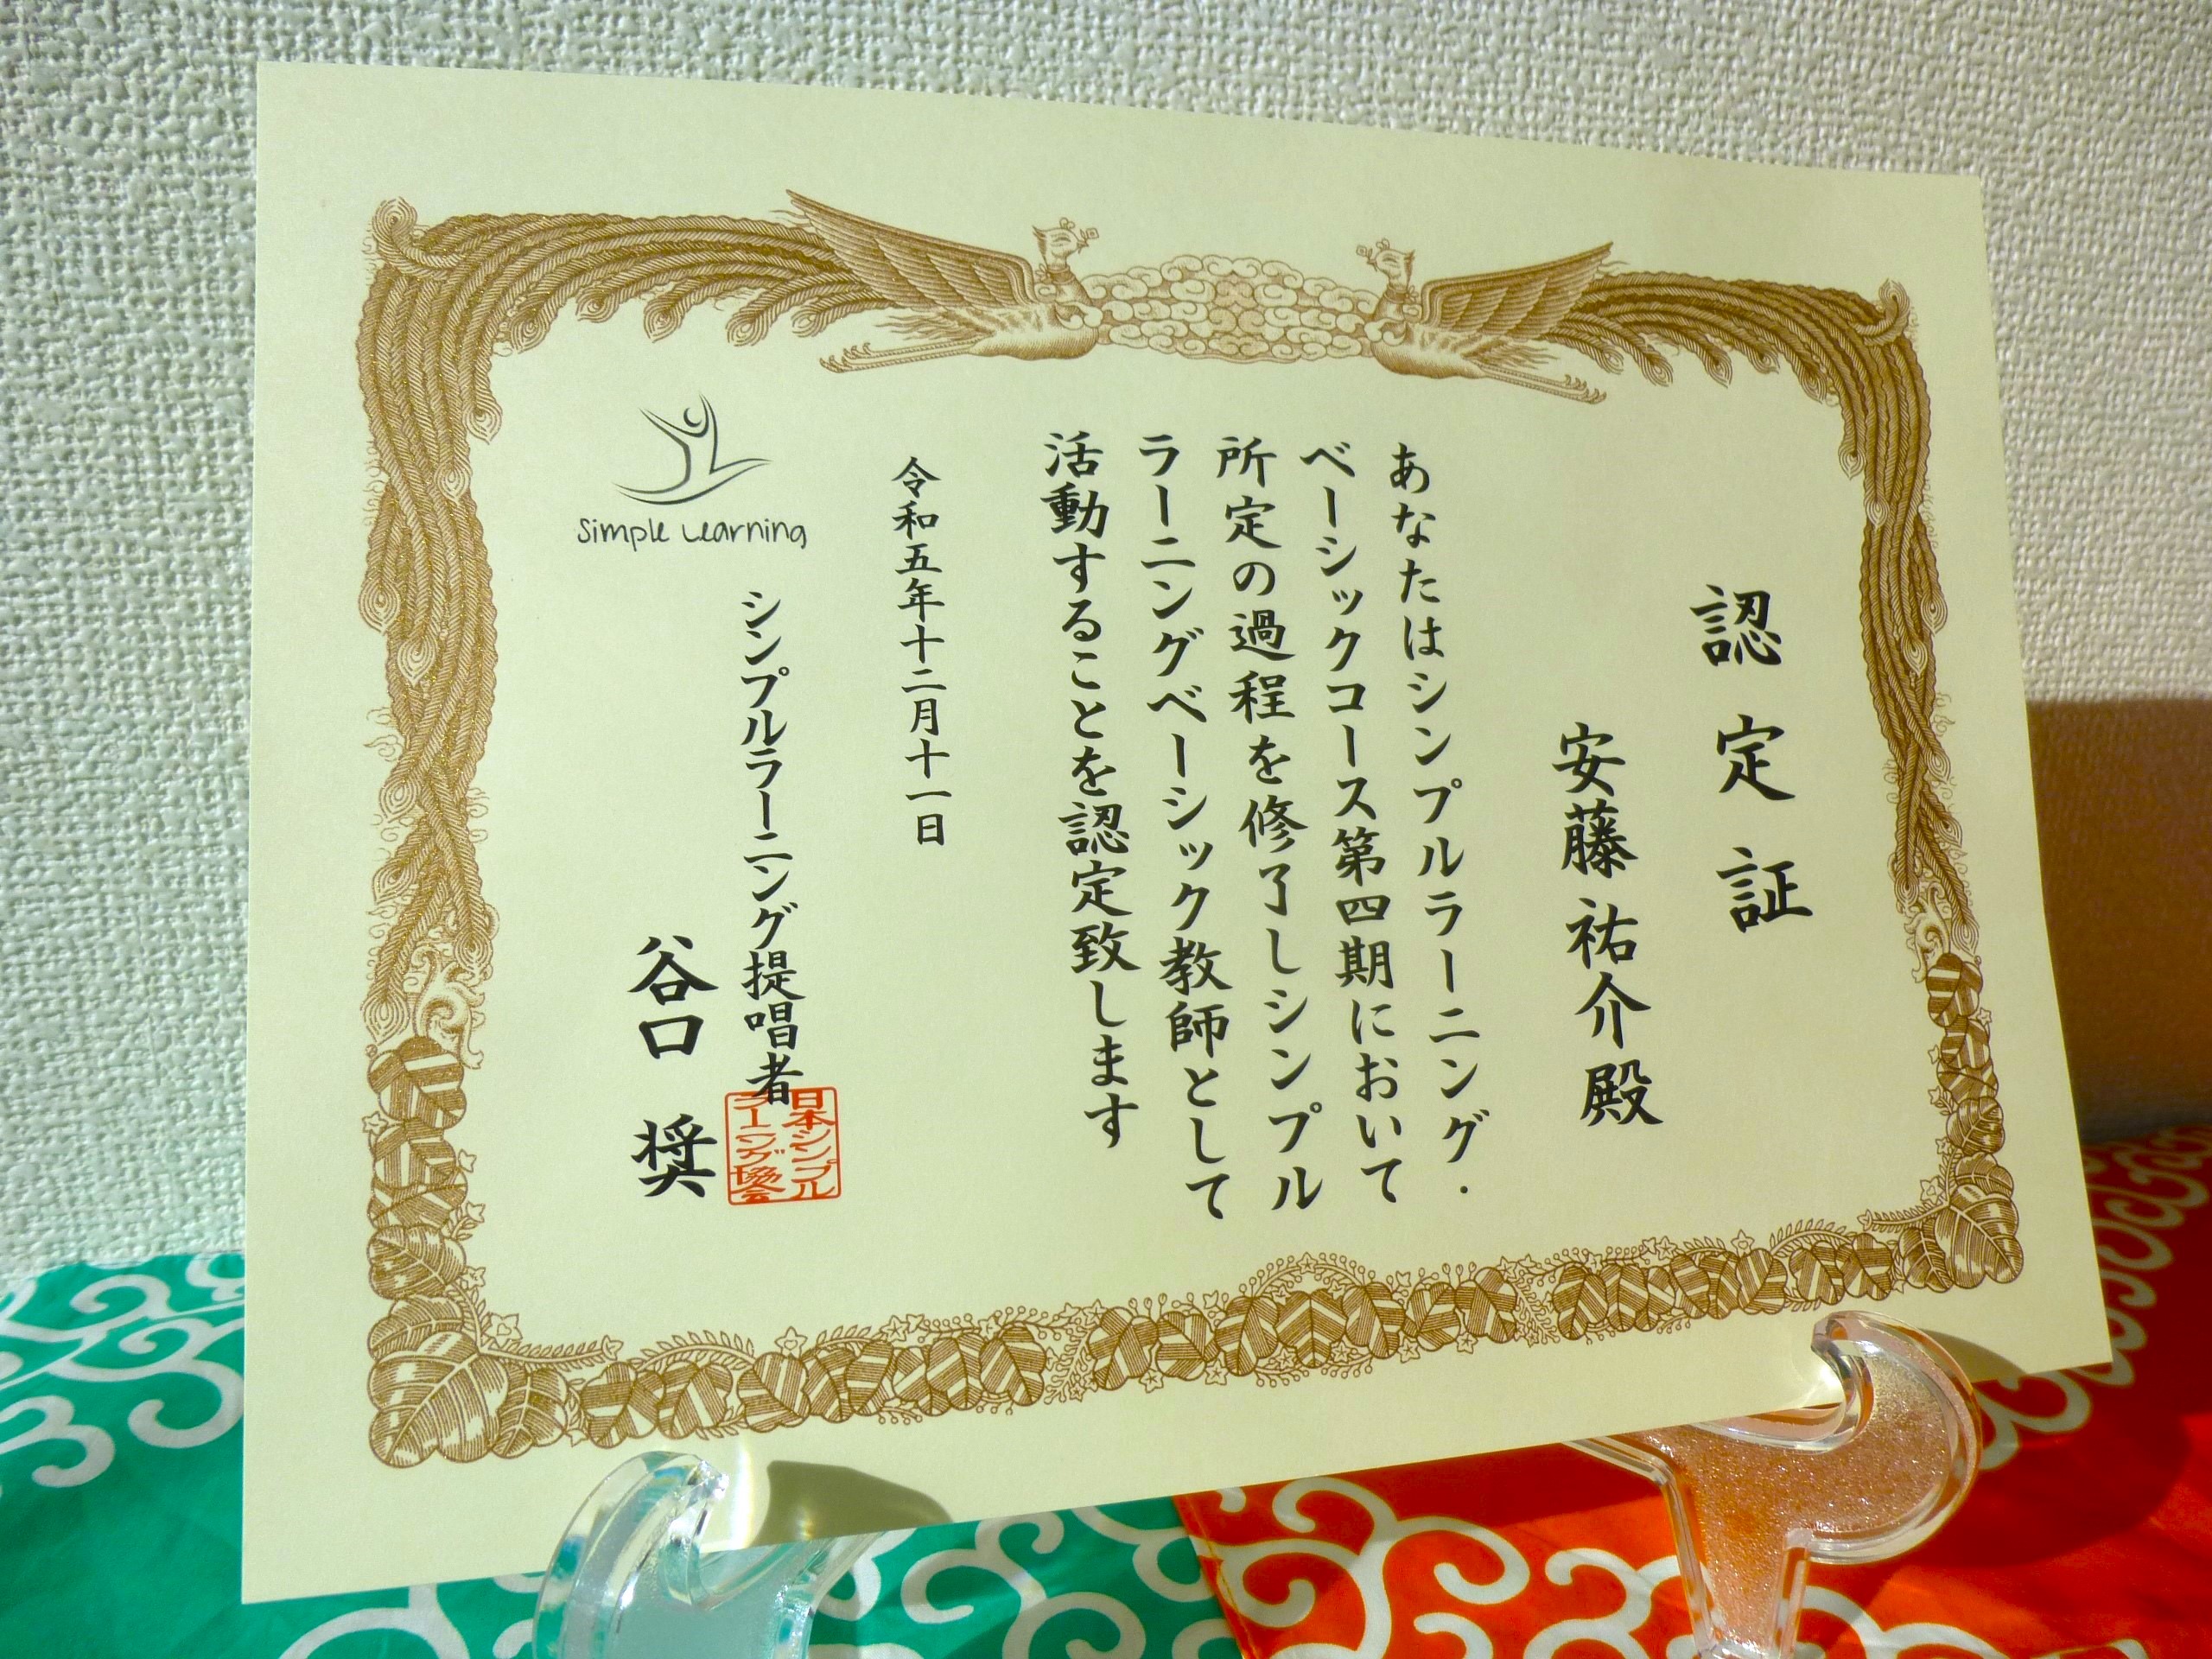 認定証
安藤祐介殿
あなたはシンプルラーニング・
ベーシックコース第四期において
所定の過程を修了しシンプル
ラーニングベーシック教師として
活動することを認定致します
令和五年十二月十一日
Simple Learning
シンプルラーニング提唱者
谷口 奨
日本シンプル
ラーニング協会